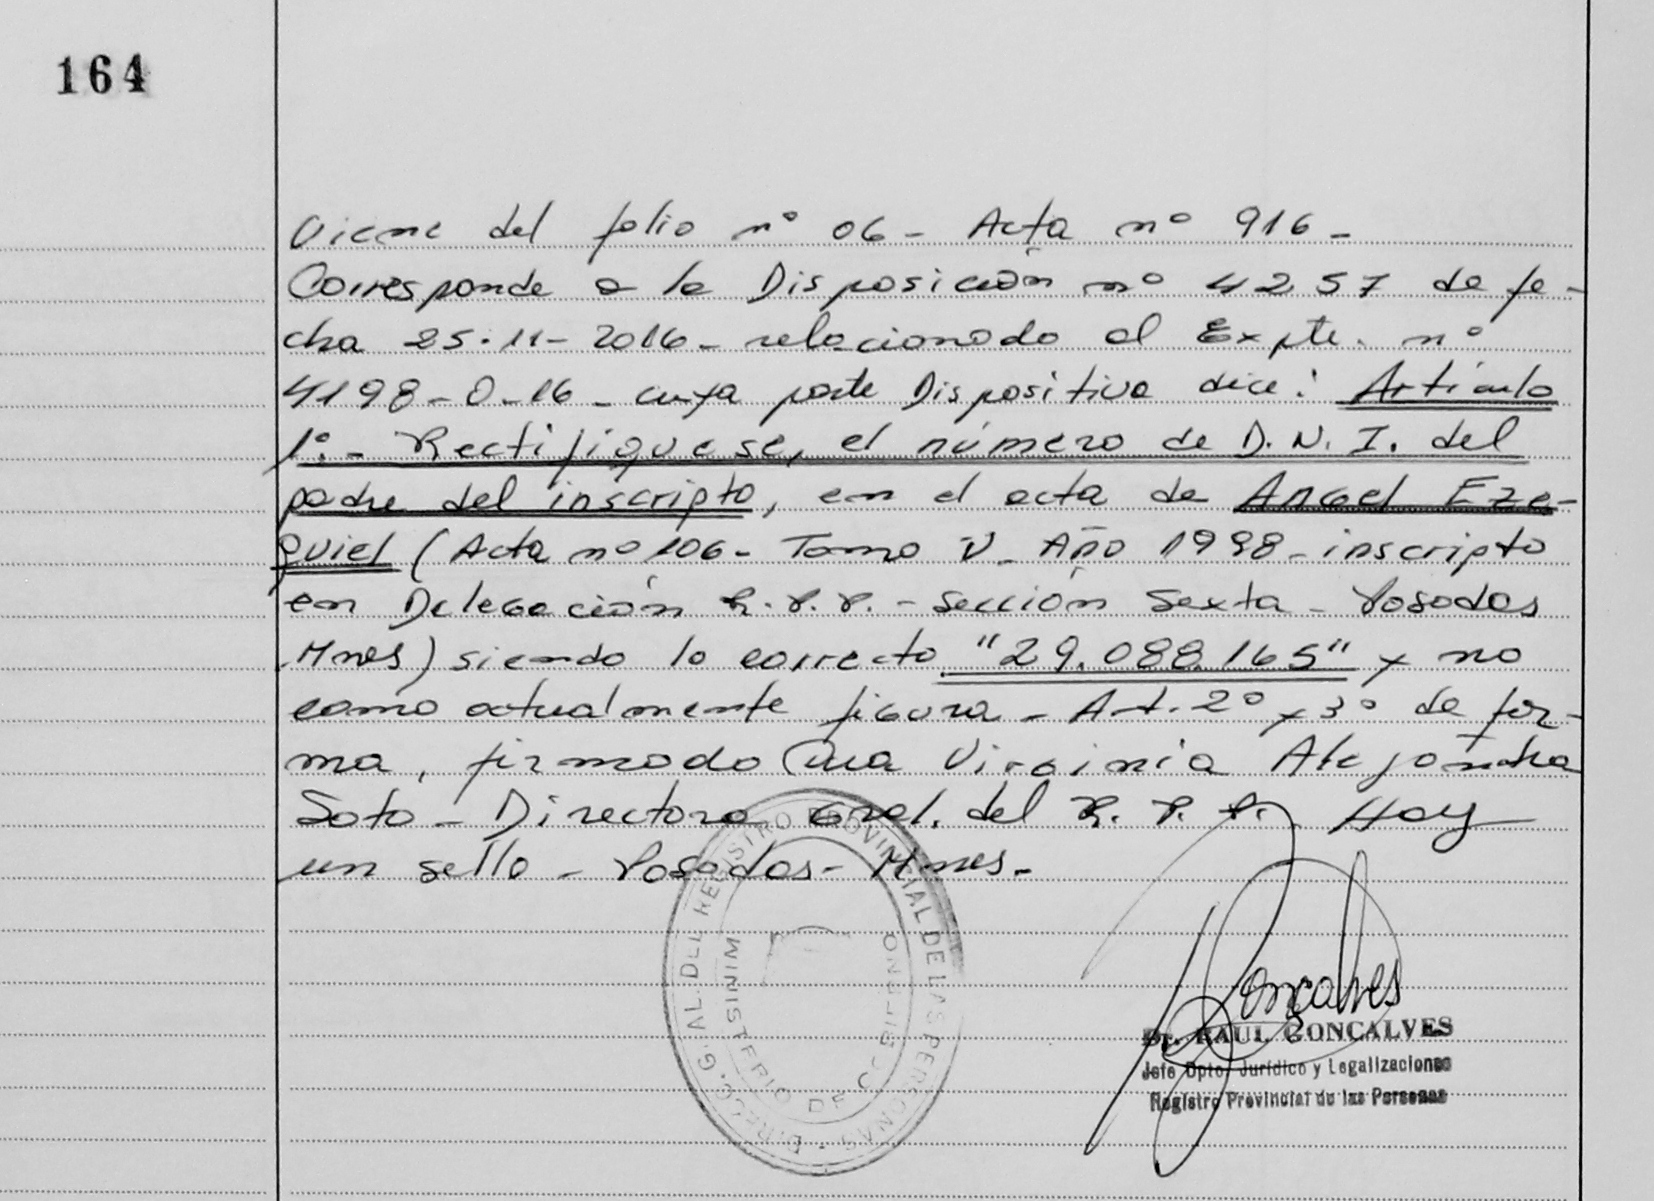 164
Viene del folio nº 06 - Acta nº 916 -
Corresponde a la Disposición nº 4257 de fe-
cha 25-11-2016 - relacionado al Expte. nº
4198-O-16 - cuya parte Dispositiva dice: Artículo
1º.- Rectifíquese, el número de D.N.I. del
padre del inscripto, en el acta de Angel Eze-
quiel (Acta nº 106 - Tomo V - Año 1998 - inscripto
en Delegación R.P.P. - Sección Sexta - Posadas
Mnes) siendo lo correcto "29.088.165" y no
como actualmente figura - Art. 2º y 3º de for-
ma, firmado Virginia Alejandra
Soto - Directora Gral. del R.P.P. Hay
un sello - Posadas - Mnes.-
DIRECC. G'AL. DEL REGISTRO PROVINCIAL DE LAS PERSONAS
MINISTERIO DE GOBIERNO
Gonçalves
Dr. RAUL GONCALVES
Jefe Dpto. Jurídico y Legalizaciones
Registro Provincial de las Personas